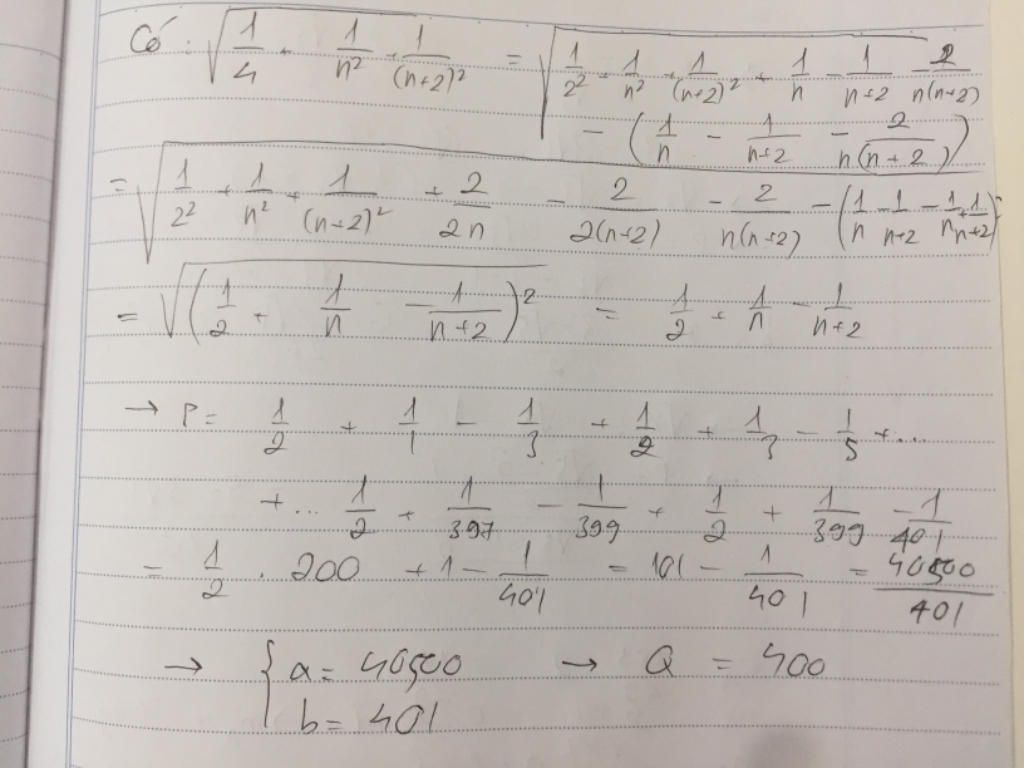 Có : √(1/4 + 1/n² + 1/(n+2)²) = √(1/2² + 1/n² + 1/(n+2)² + 1/n - 1/(n+2) - 2/(n(n+2))
- (1/n - 1/(n+2) - 2/(n(n+2))))
= √(1/2² + 1/n² + 1/(n+2)² + 2/2n - 2/(2(n+2)) - 2/(n(n+2)) - (1/n - 1/(n+2) - 1/n + 1/(n+2)))
= √((1/2 + 1/n - 1/(n+2))²) = 1/2 + 1/n - 1/(n+2)
→ P = 1/2 + 1/1 - 1/3 + 1/2 + 1/3 - 1/5 + ...
+ ... 1/2 + 1/397 - 1/399 + 1/2 + 1/399 - 1/401
= 1/2 . 200 + 1 - 1/401 = 101 - 1/401 = 40500/401
→ { a = 40500 → Q = 400
b = 401